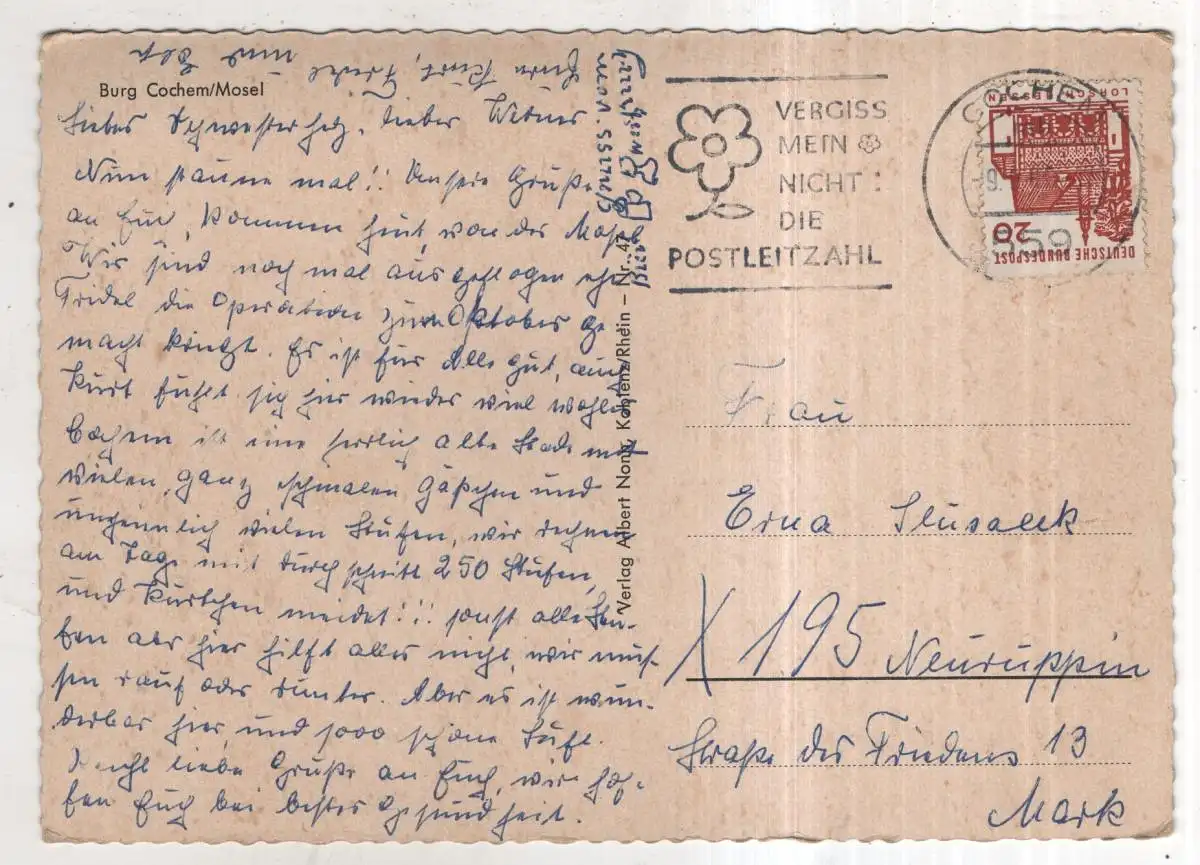 Burg Cochem/Mosel
Liebes Schwesterherz, lieber Werner
Nun staune mal!! Unsere Grüße
an Euch, kommen heut, von der Mosel
Wir sind noch mal ausgeflogen ehe
Fridel die Operation zum Oktober ge-
macht kriegt. Es ist für Alle gut, auch
Kurt fühlt sich hier wieder viel wohler,
Cochem ist eine herrlich alte Stadt mit
vielen, ganz schmalen Gäßchen und
unheimlich vielen Stufen, wir rechnen
am Tag, mit Durchschnitt 250 Stufen,
und Kurtchen meidet!!! sonst alle Stu-
fen aber hier hilft alles nicht, wir müs-
sen rauf oder runter. Aber es ist wun-
derbar hier, und sooo schöne Luft.
Recht liebe Grüße an Euch, wir hof-
fen Euch bei bester Gesundheit.
Eure Kurt, Fridel und
Verlag Albert Nonn, Koblenz/Rhein – Nr. 47
VERGISS
MEIN
NICHT:
DIE
POSTLEITZAHL
COCHEM
559
LORSCH HESSEN
20
DEUTSCHE BUNDESPOST
Frau
Erna Slusalek
X 195 Neuruppin
Straße des Friedens 13
Mark